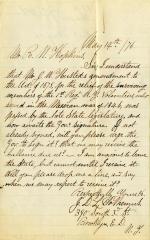 May 14th /76.
Mr. R. M. Hopkins,
Sir, I understand
that Mr. J. W. Husted's amendment to
the Act of 1875, for the relief of the surviving
members of the 1st Regt. N.Y. Volunteers who
served in the Mexican war of 1846, was
passed by the State Legislature, and
now awaits the Gov. signature. If not
already signed, will you please urge the
Gov. to sign it? that we may receive the
balance due us. I am anxious to leave
the State, but cannot until I receive it.
Will you please drop me a line, and say
when we may expect to receive it?
Respectfully Yours,
J. D. L.
390 South 3 St.
Brooklyn E. D.
N.Y.